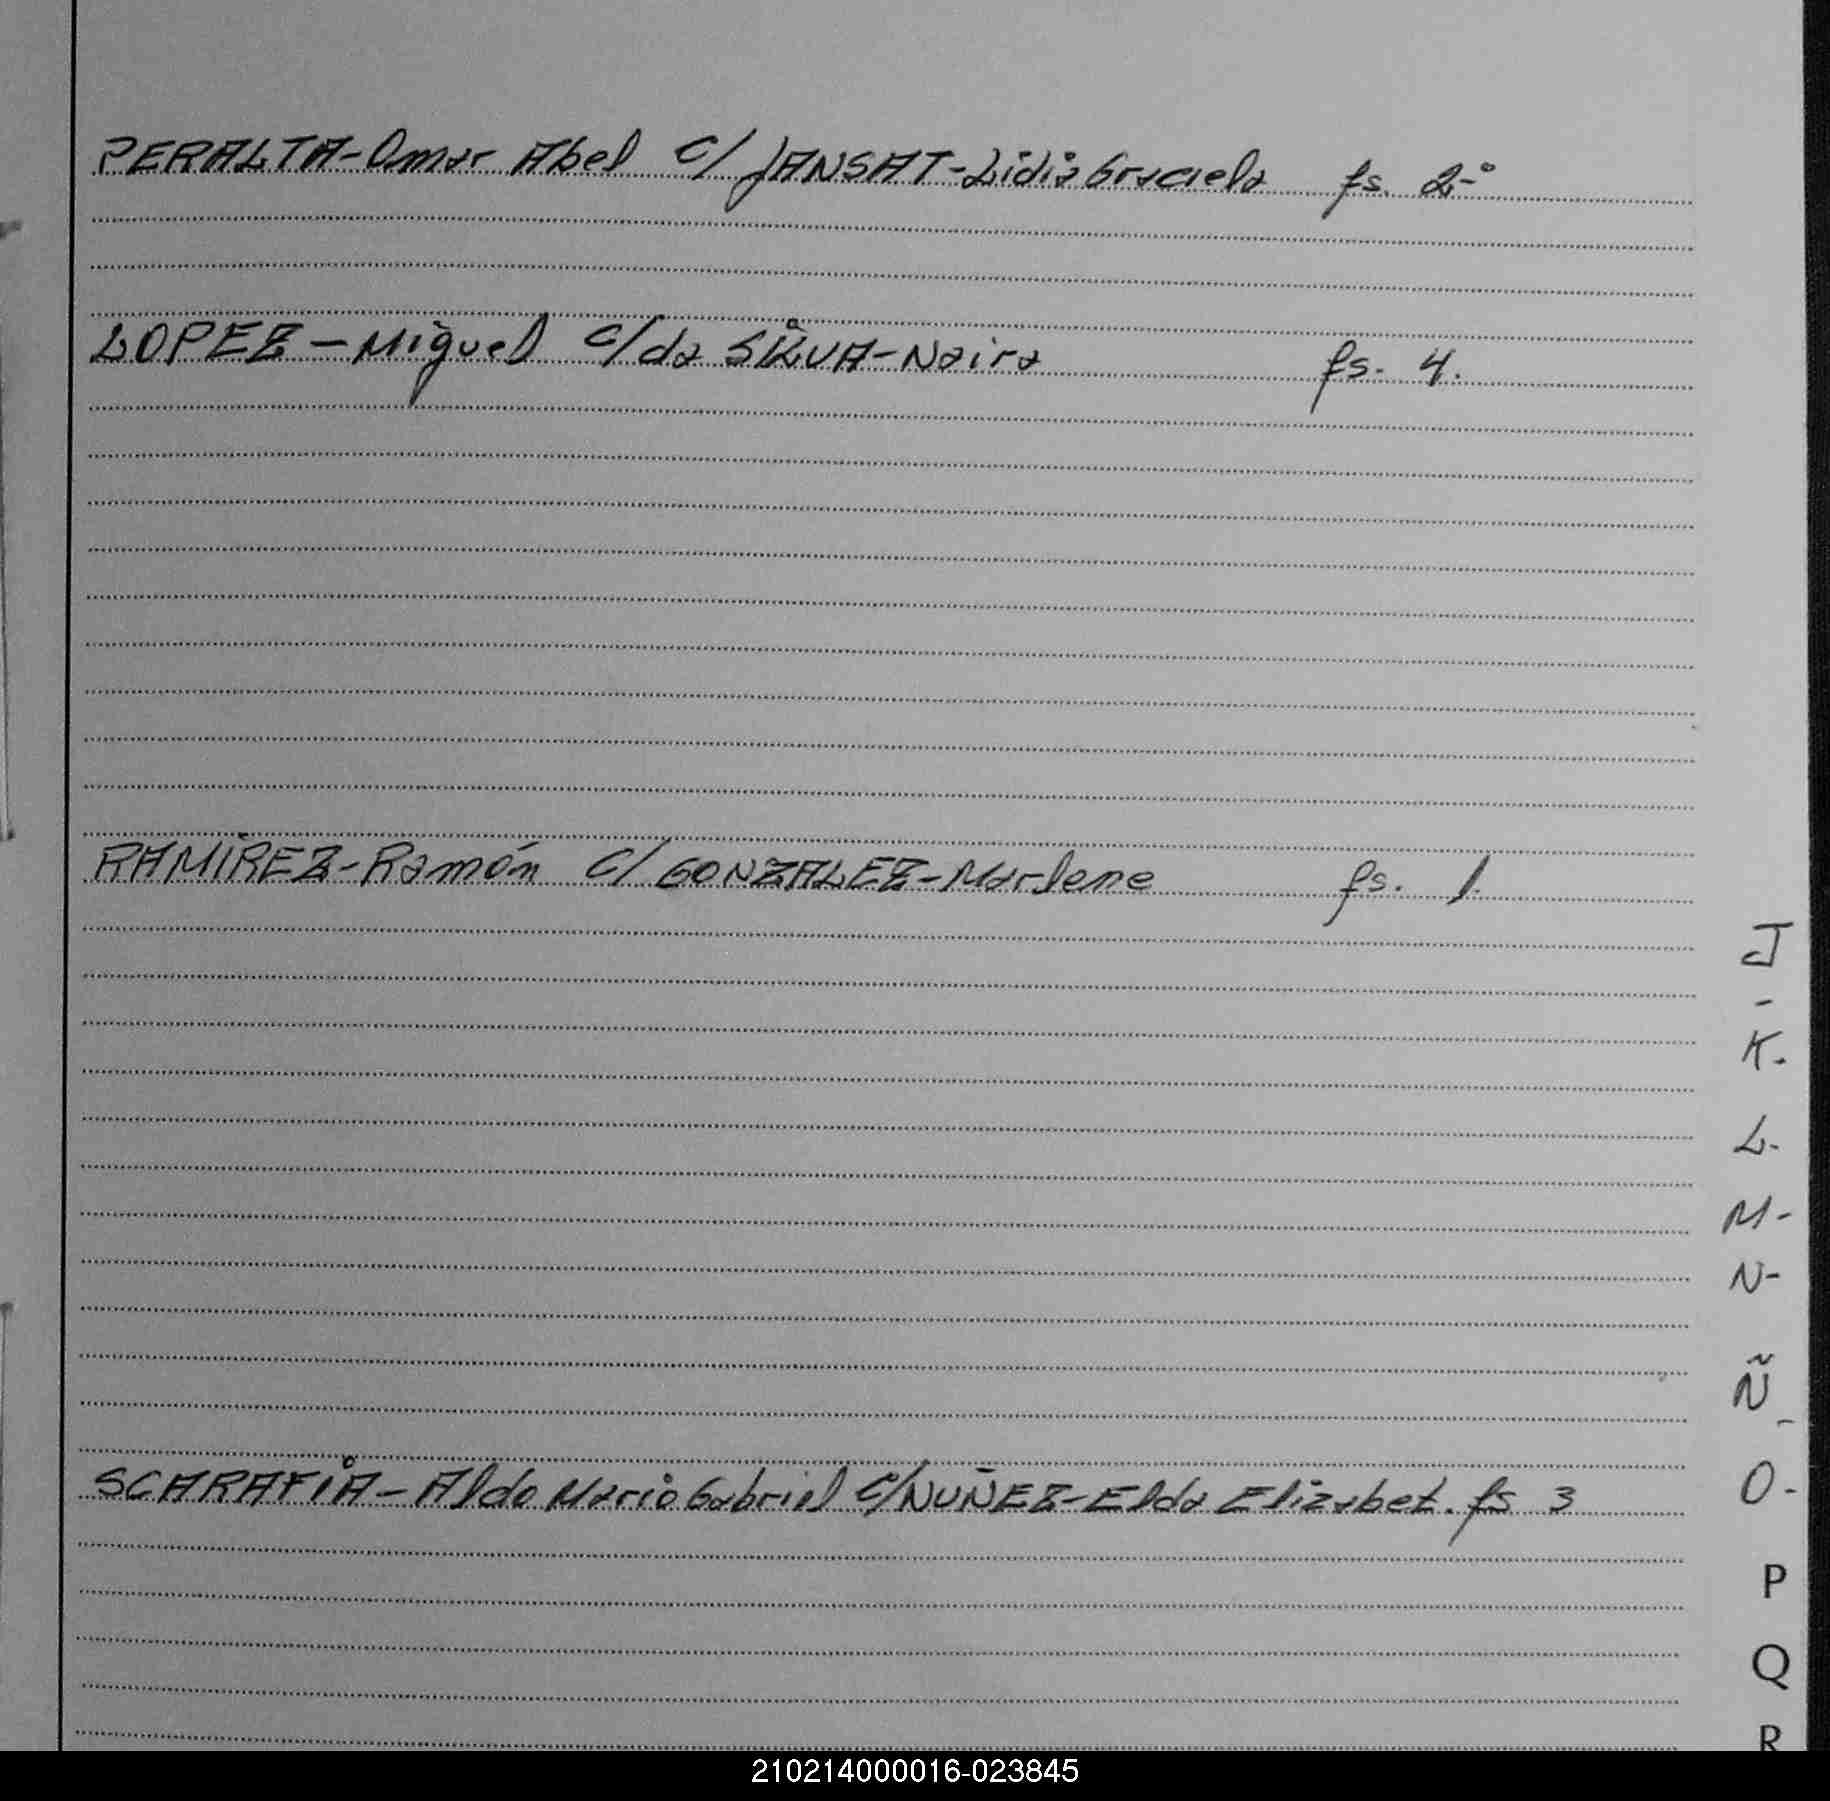 PERALTA-Omar Abel c/ JANSAT-Lidia Graciela fs. 2-°
LOPEZ-Miguel c/da SILVA-Naira fs. 4.
RAMIREZ-Ramón c/ GONZALEZ-Marlene fs. 1.
J
-
K.
L.
M-
N-
Ñ-
SCARAFIA-Aldo Mario Gabriel c/NUÑEZ-Elda Elizabet. fs 3
O-
P
Q
R
210214000016-023845